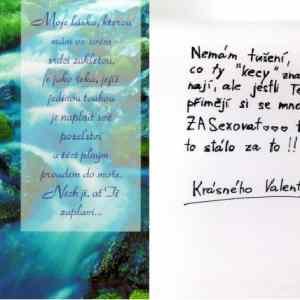 Moje lásko, kterou
mám ve svém
srdci zakletou,
Je jako řeka, jejíž
jedinou touhou
je naplnit své
pozelství
a téct plným
proudem do moře.
Nech ji, ať Tě
zaplaví...
Nemám tušení,
co ty "kecy" zna
nají, ale jestli Tě
přimějí si se mno
ZASexovat... t
to stálo za to !!
Krásného Valent